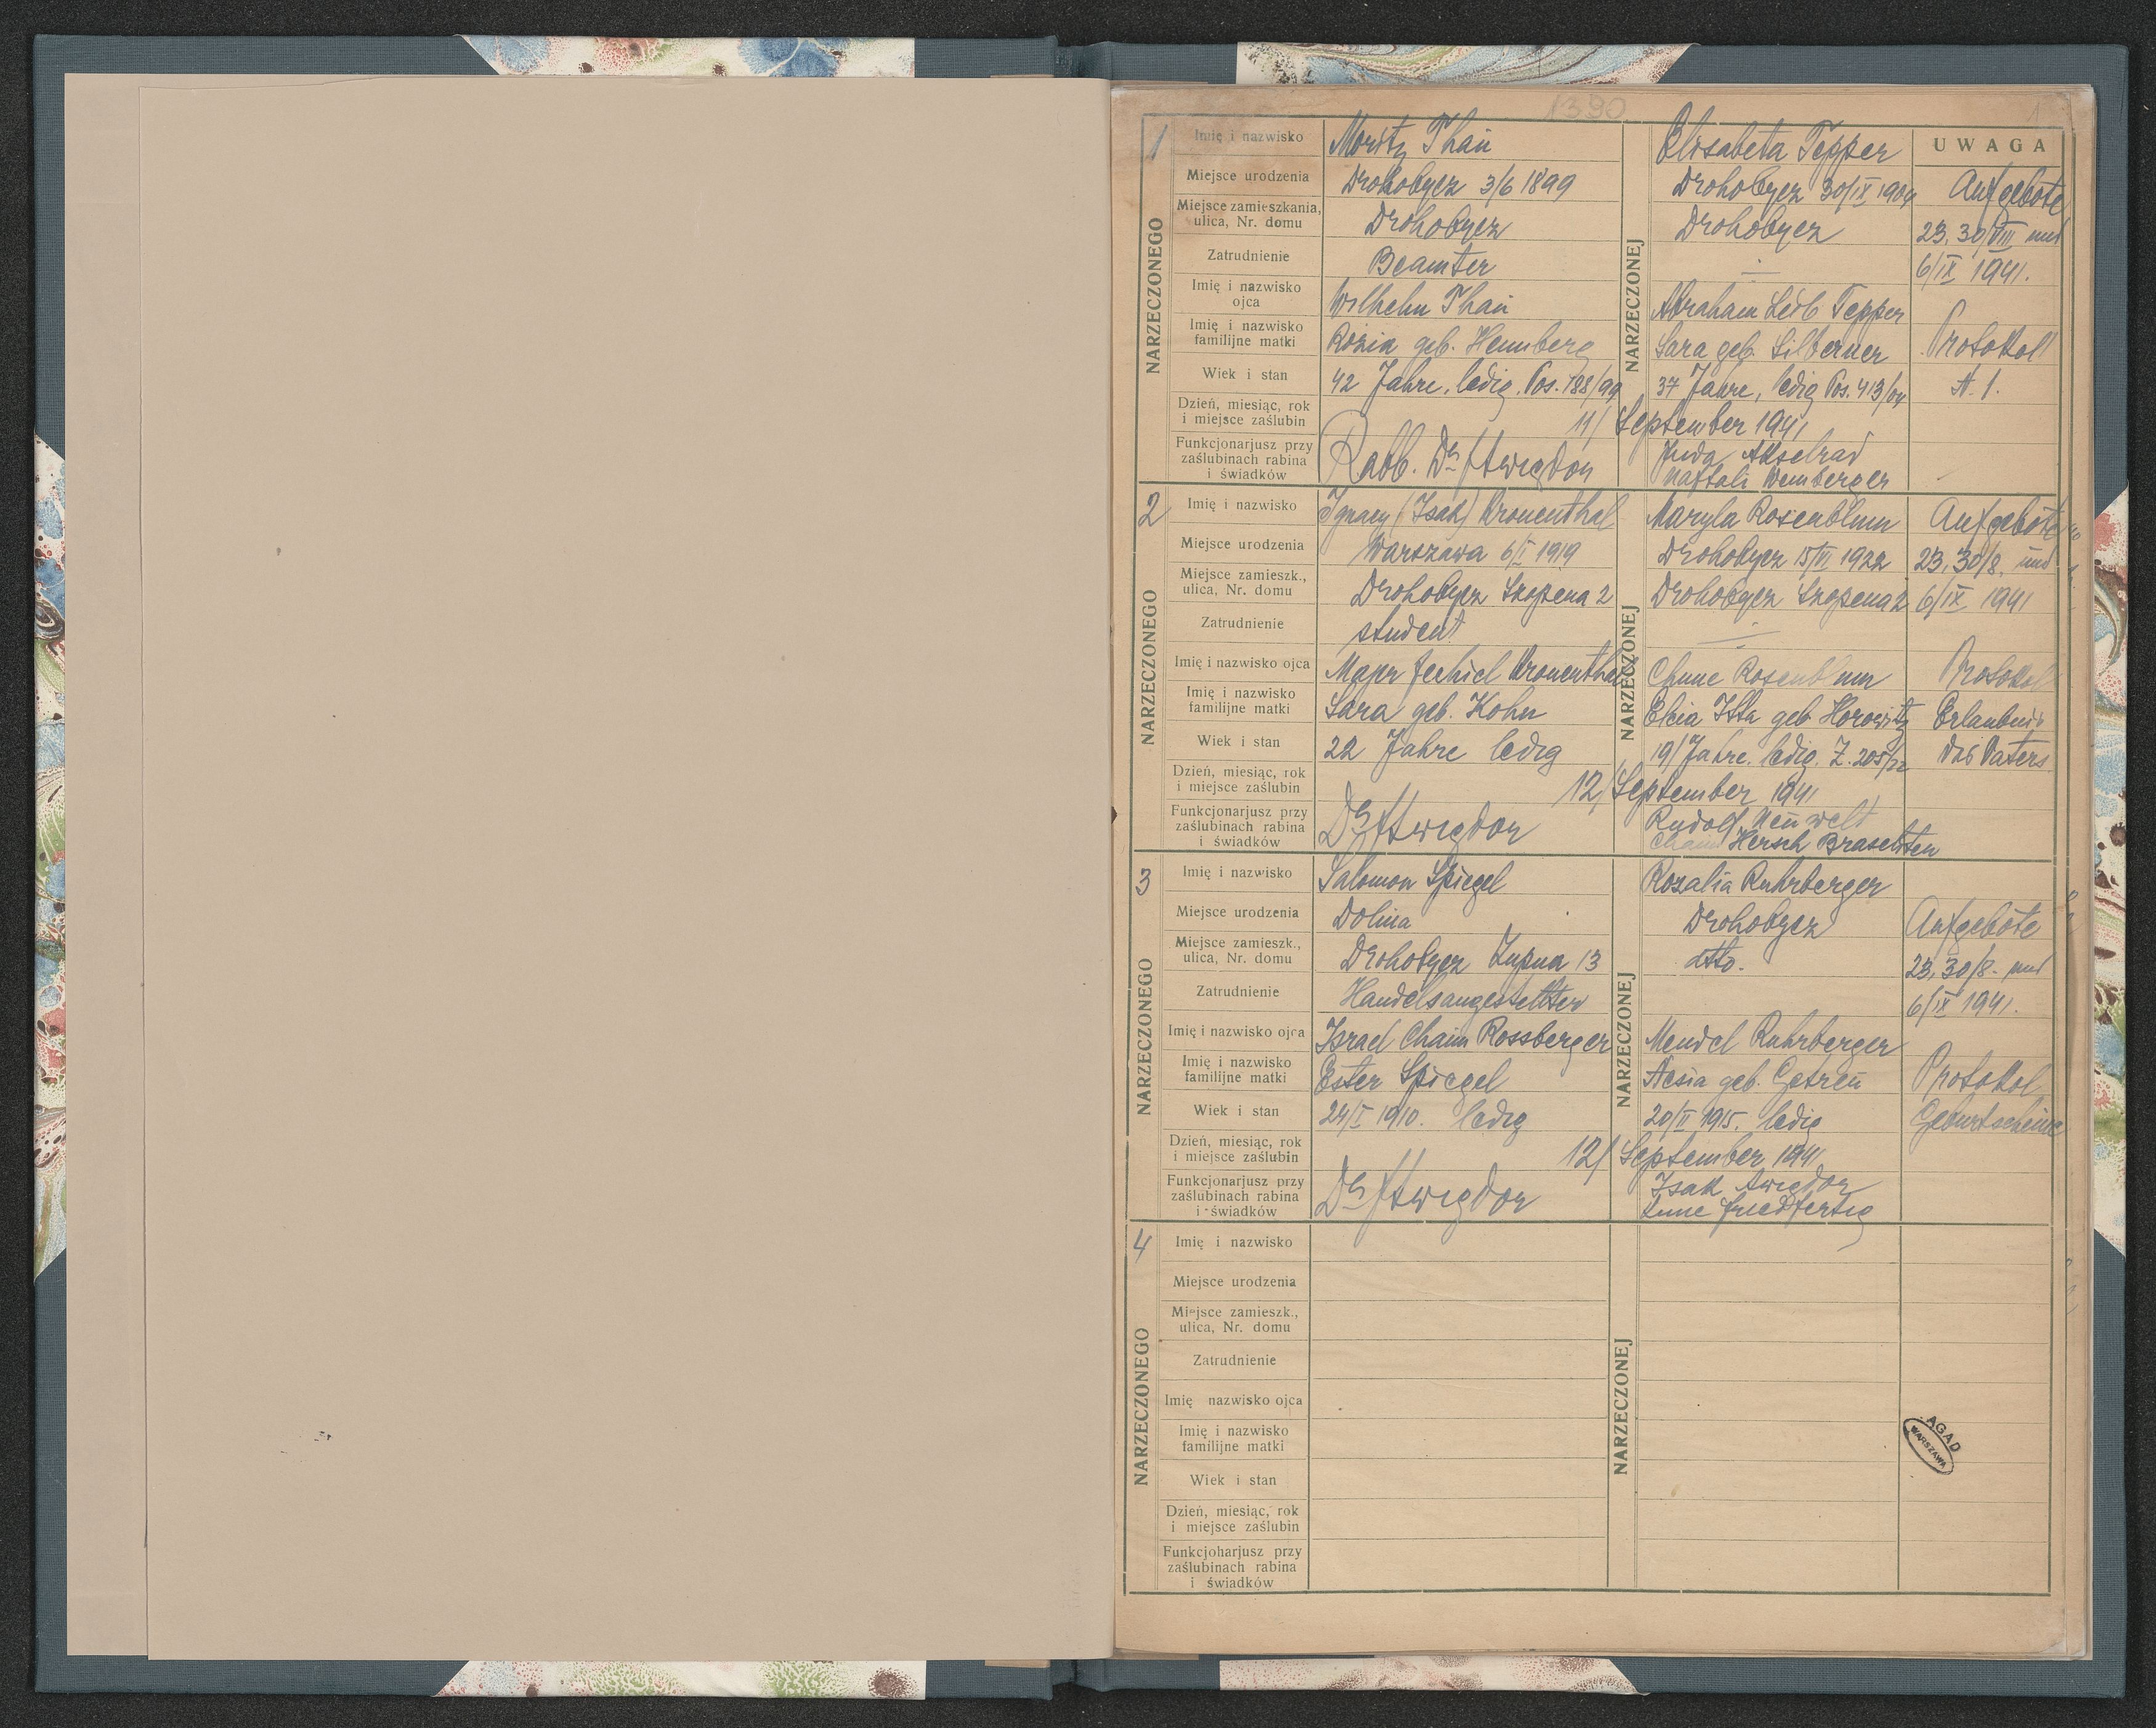 1390
1
1 Imię i nazwisko Moritz Thau Elisabeta Tepper UWAGA
Miejsce urodzenia Drohobycz 3/6 1899 Drohobycz 30/IX 1904 Aufgebote
Miejsce zamieszkania, ulica, Nr. domu Drohobycz Drohobycz 23, 30/VIII und
Zatrudnienie Beamter — 6/IX 1941.
Imię i nazwisko ojca Wilhelm Thau Abraham Leib Tepper
Imię i nazwisko familijne matki Rózia geb. Hennberg Sara geb. Silberner Protokoll
Wiek i stan 42 Jahre, ledig, Pos. 188/99 37 Jahre, ledig Pos. 413/04 A. 1.
Dzień, miesiąc, rok i miejsce zaślubin 11/ September 1941
Funkcjonarjusz przy zaślubinach rabina i świadków Rabb. Dr Awigdor Juda Akselrad
Naftali Wemberger
NARZECZONEGO
NARZECZONEJ
2 Imię i nazwisko Ignacy (Isak) Kronenthal Maryla Rosenblum Aufgebote
Miejsce urodzenia Warszawa 6/I 1919 Drohobycz 15/VI 1922 23, 30/8. und
Miejsce zamieszk., ulica, Nr. domu Drohobycz Szopena 2 Drohobycz Szopena 2 6/IX 1941
Zatrudnienie student —
Imię i nazwisko ojca Majer Jechiel Kronenthal Chune Rosenblum Protokol
Imię i nazwisko familijne matki Sara geb. Kohn Itta geb. Horowitz Erlaubnis
Wiek i stan 22 Jahre ledig 19/ Jahre. ledig. Z. 205/22 des Vaters
Dzień, miesiąc, rok i miejsce zaślubin 12/ September 1941
Funkcjonarjusz przy zaślubinach rabina i świadków Dr Awigdor Rudolf Neuwelt
Chaim Hersch
NARZECZONEGO
NARZECZONEJ
3 Imię i nazwisko Salomon Spiegel Rozalia Ruhrberger
Miejsce urodzenia Dolina Drohobycz Aufgebote
Miejsce zamieszk., ulica, Nr. domu Drohobycz Żupna 13 dtto. 23, 30/8. und
Zatrudnienie Handelsangestellter 6/IX 1941.
Imię i nazwisko ojca Israel Chaim Rossberger Mendel Ruhrberger
Imię i nazwisko familijne matki Ester Spiegel geb. Getreu Protokol
Wiek i stan 24/I 1910. ledig 20/II 1915. ledig Geburtscheine
Dzień, miesiąc, rok i miejsce zaślubin 12/ September 1941
Funkcjonarjusz przy zaślubinach rabina i świadków Dr Awigdor Isak Awigdor
Friedfertig
NARZECZONEGO
NARZECZONEJ
4 Imię i nazwisko
Miejsce urodzenia
Miejsce zamieszk., ulica, Nr. domu
Zatrudnienie
Imię nazwisko ojca
Imię i nazwisko familijne matki
Wiek i stan
Dzień, miesiąc, rok i miejsce zaślubin
Funkcjoharjusz przy zaślubinach rabina i świadków
NARZECZONEGO
NARZECZONEJ
AGAD
WARSZAWA